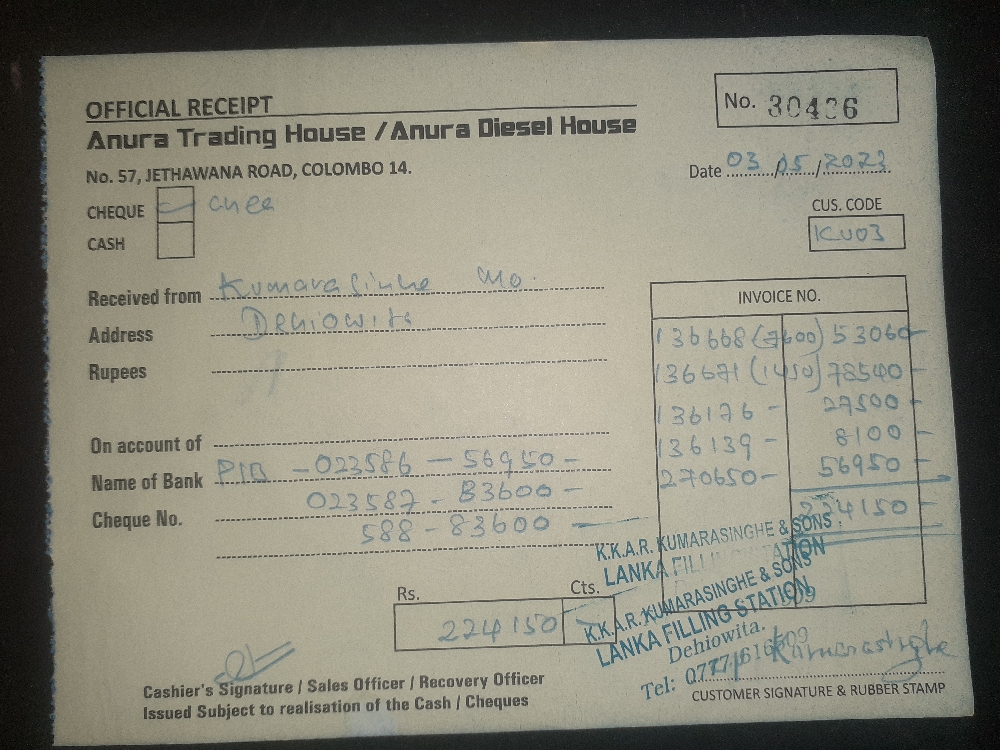 OFFICIAL RECEIPT
No. 30426
Anura Trading House / Anura Diesel House
No. 57, JETHAWANA ROAD, COLOMBO 14.
Date 03/05/2023
CHEQUE
CASH
CUS. CODE
KU03
Received from Kumarasinhe
Address Dehiowita
Rupees
On account of
Name of Bank - 023586 - 56950 -
023587 - 83600 -
Cheque No. 588 - 83600 -
INVOICE NO.
136668 (7600) 53060 -
136671 (1450) 78540 -
136176 - 27500 -
136139 - 8100 -
270650 - 56950 -
224150 -
Rs. Cts.
224150
K.K.A.R. KUMARASINGHE & SONS
LANKA FILLING STATION
K.K.A.R. KUMARASINGHE & SONS
LANKA FILLING STATION
Dehiowita.
Tel: 0777 616609
Kumarasinghe
Cashier's Signature / Sales Officer / Recovery Officer
CUSTOMER SIGNATURE & RUBBER STAMP
Issued Subject to realisation of the Cash / Cheques